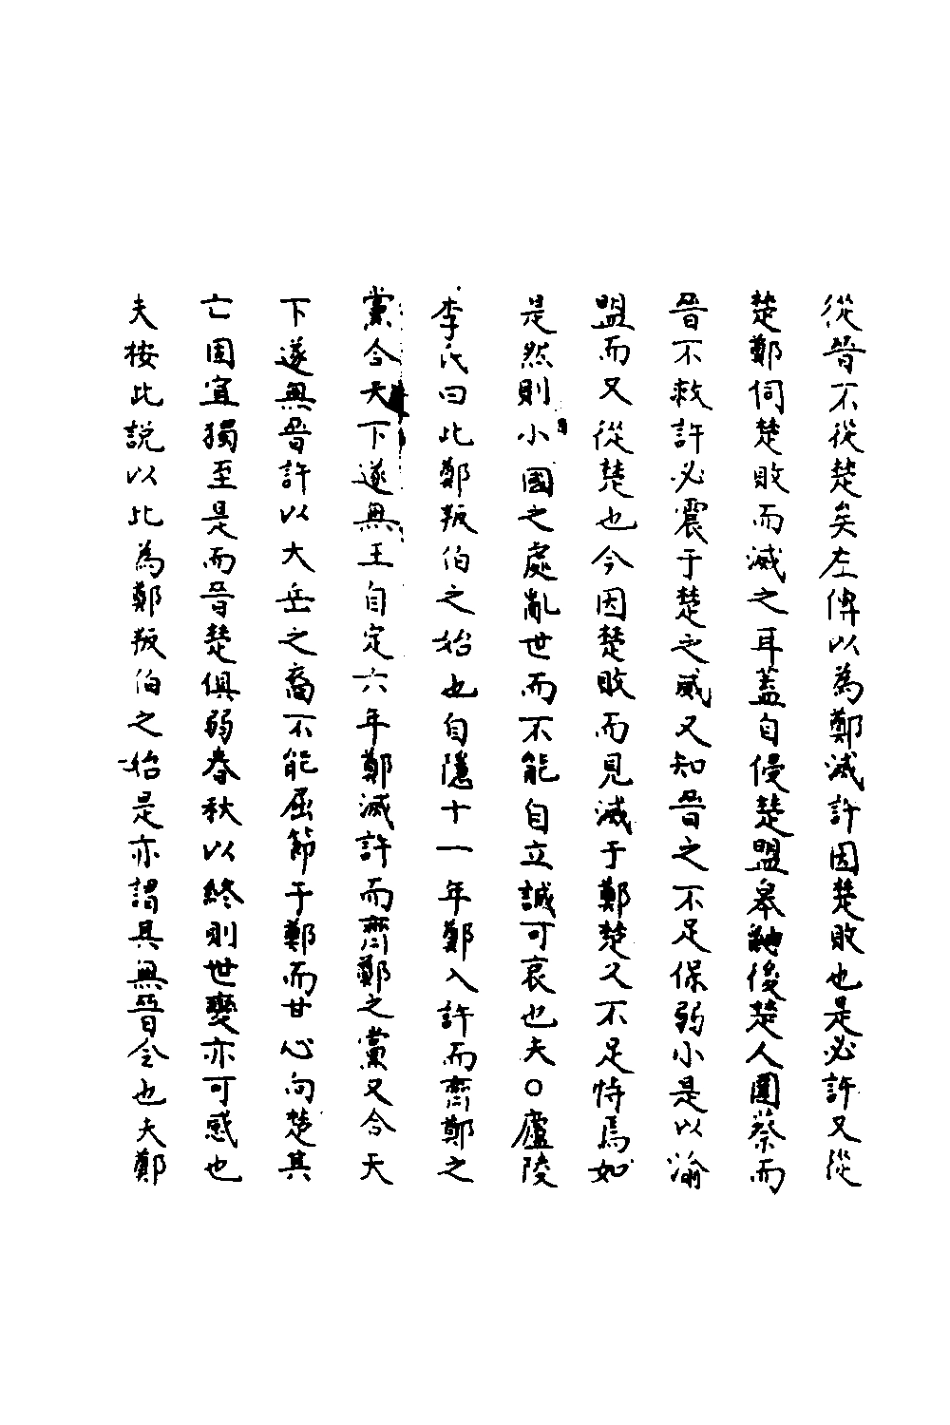 從晉不從楚矣左傳以為鄭滅許因楚敗也是必許又從
楚鄭伺楚敗而滅之耳蓋自侵楚盟皋鼬後楚人圍蔡而
晉不救許必震于楚之威又知晉之不足保弱小是以渝
盟而又從楚也今因楚敗而見滅于鄭楚又不足恃焉如
是然則小國之處亂世而不能自立誠可哀也夫○廬陵
李氏曰此鄭叛伯之始也自隱十一年鄭入許而齊鄭之
黨合天下遂無王自定六年鄭滅許而齊鄭之黨又合天
下遂無晉許以大岳之裔不能屈節于鄭而甘心向楚其
亡固宜獨至是而晉楚俱弱春秋以終則世變亦可感也
夫桉此說以比為鄭叛伯之始是亦謂其無晉令也夫鄭